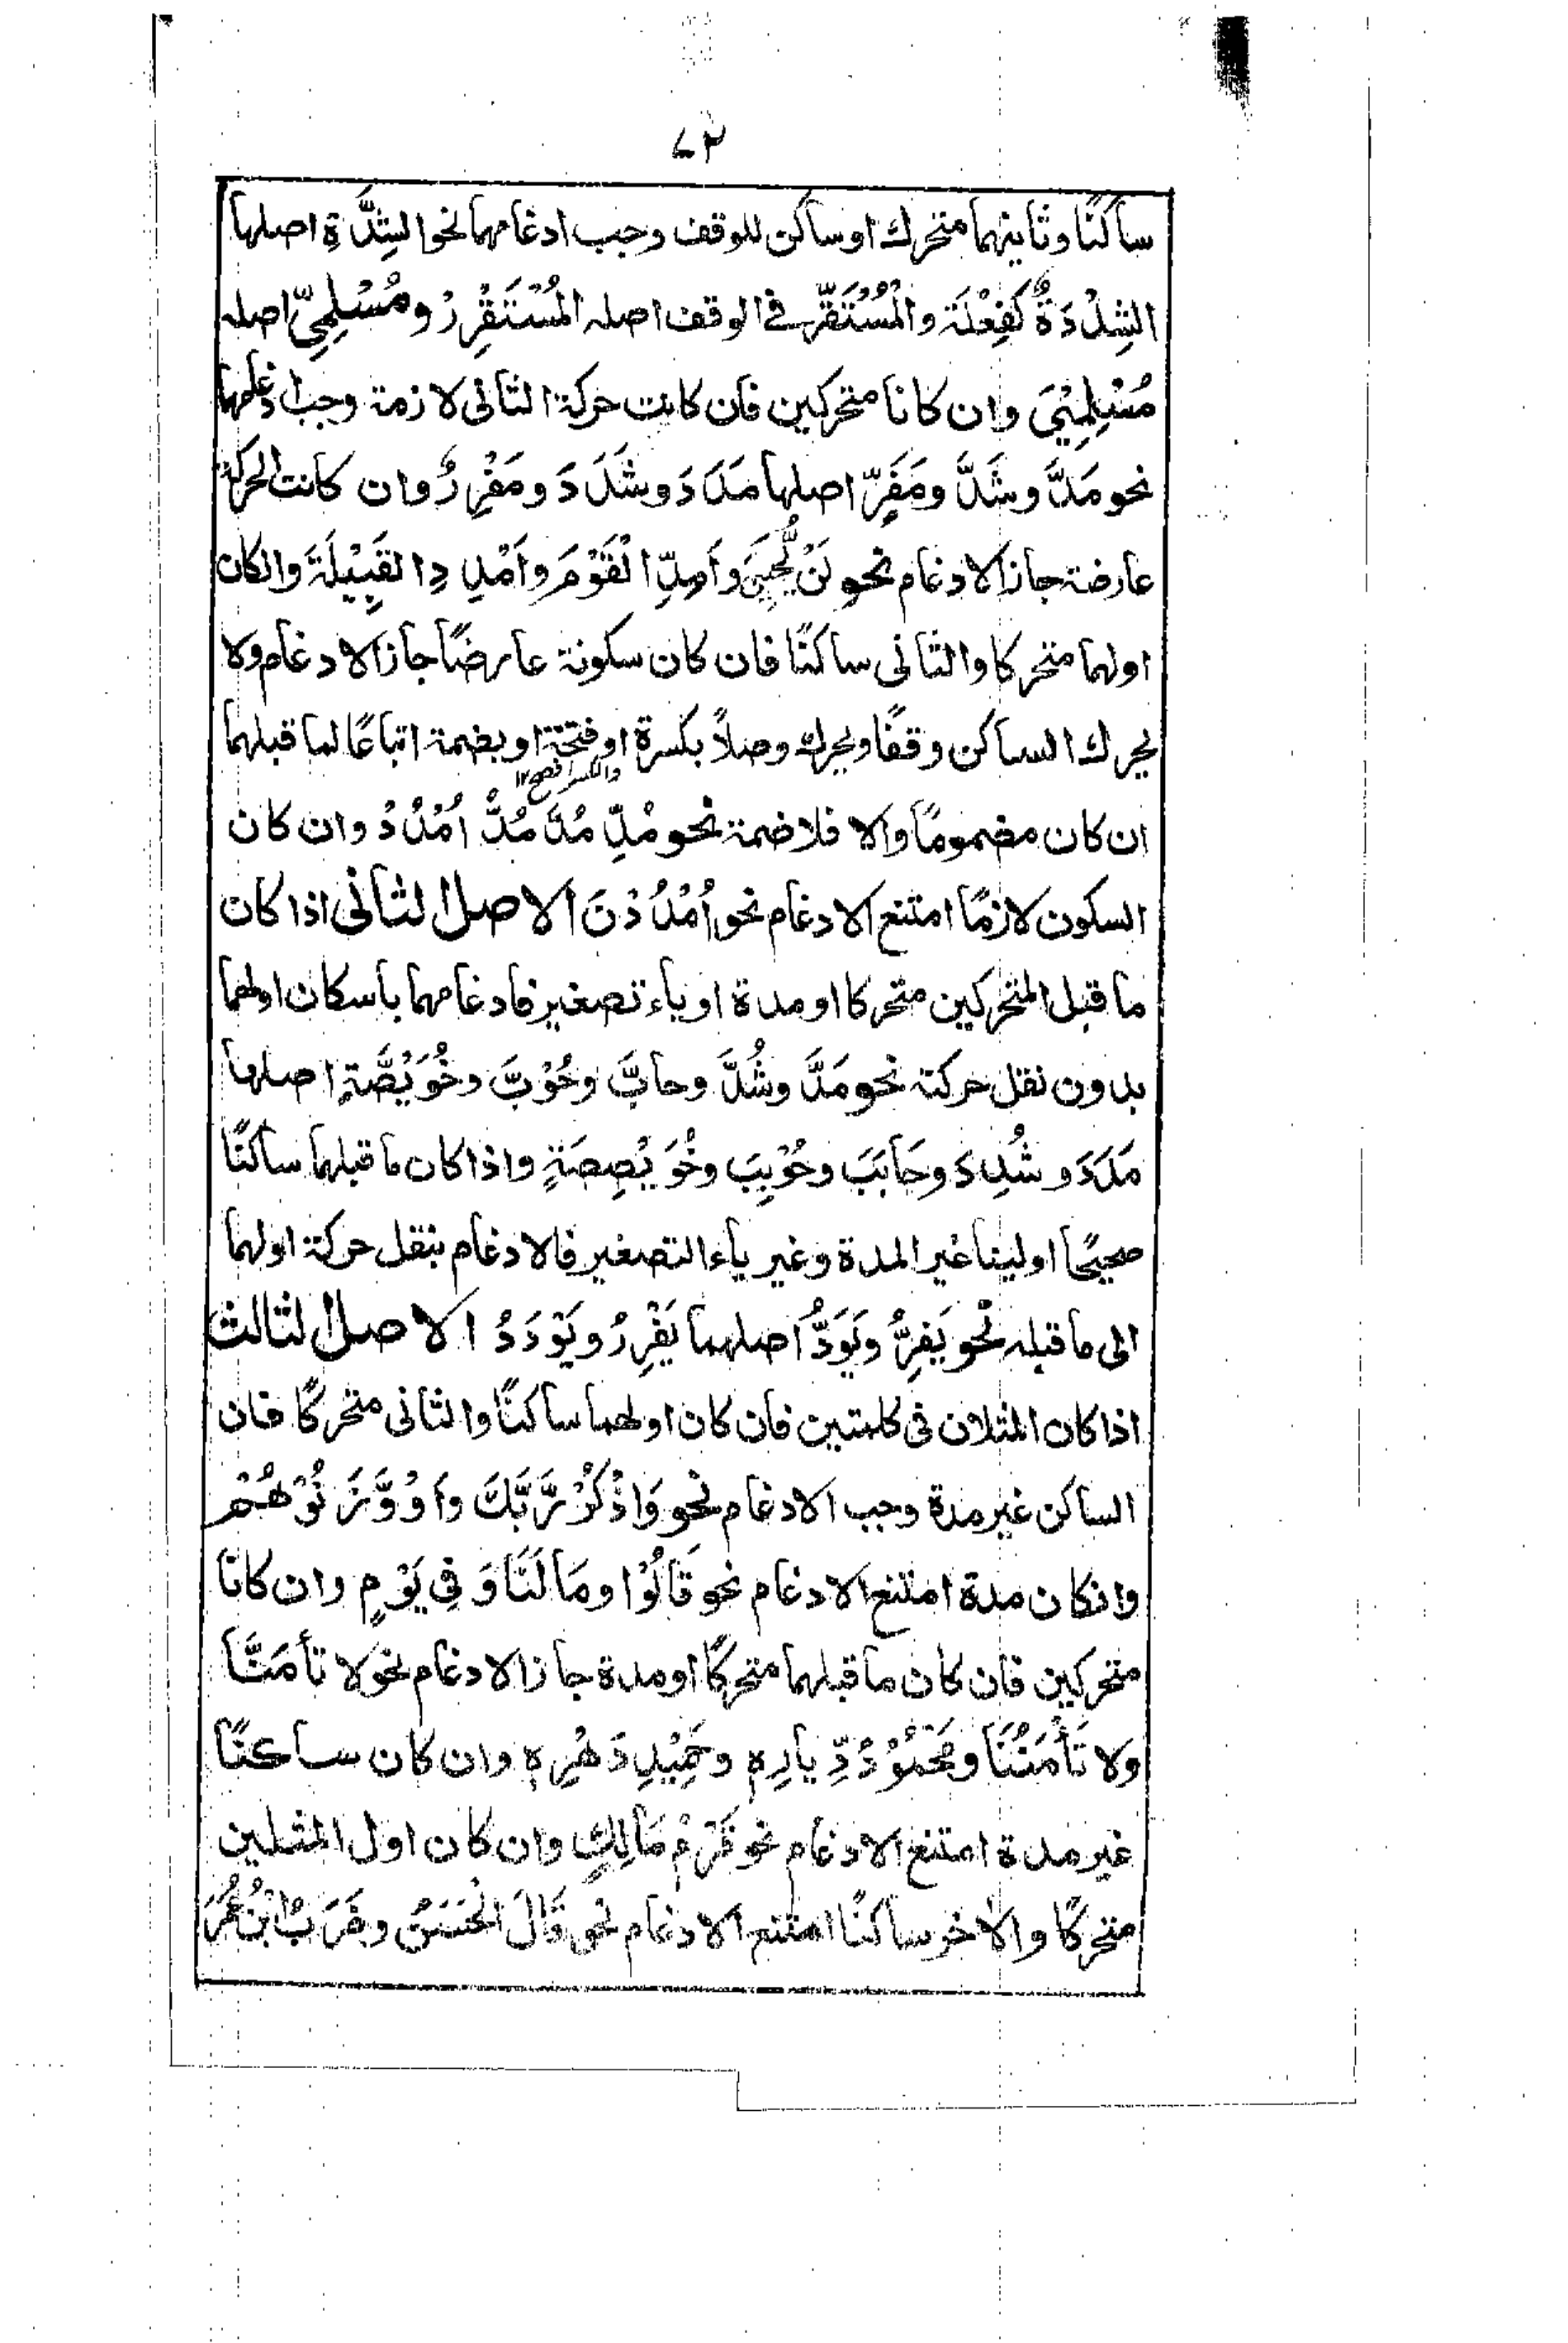 ٧٢
ساكنًا وثانيهما متحرك او ساكن للوقف وجب ادغامهما نحو الشِّدَّةِ اصلها
الشِدْدَةُ كَفِعْلَة والْمُسْتَقَرّ في الوقف اصله الْمُسْتَقْرِرْ ومُسْلِمِيَّ اصله
مُسْلِمِيْيَ وان كانا متحركين فان كانت حركة الثانى لازمة وجب ادغامها
نحو مَدَّ وشَدَّ ومَفَرّ اصلها مَدَدَ وشَدَدَ ومَفْرِرٌ وان كانت الحركة
عارضة جاز الادغام نحو لَنْ يُّحْيِيَ وأَمِدِّ الْقَوْمَ وأَمْدِدِ الْقَبِيْلَةَ وانكان
اولهما متحركا والثانى ساكنًا فان كان سكونة عارضًا جاز الادغام ولا
يحرك الساكن وقفًا ويحرك وصلاً بكسرة او فتحة او بضمة اتباعًا لما قبلهما
والكسر افصح ١٢
ان كان مضمومًا والا فلا ضمة نحو مُدِّ مُدَّ مُدُّ أُمْدُدْ وان كان
السكون لازمًا امتنع الادغام نحو أُمْدُدْنَ الاصل الثانى اذا كان
ما قبل المتحركين متحركا او مدة او ياء تصغير فادغامهما باسكان اولهما
بدون نقل حركة نحو مَدَّ وشُدَّ وحابَّ وحُوْبَّ وخُوَيْصَّةٍ اصلها
مَدَدَ وشُدِدَ وحَابَبَ وحُوْبِبَ وخُوَيْصِصَةٍ واذا كان ما قبلهما ساكنًا
صحيحًا او لينا غير المدة وغير ياء التصغير فالادغام بنقل حركة اولهما
الى ما قبله نحو يَفِرُّ ويَوَدُّ اصلهما يَفْرِرُ ويَوْدَدُ الاصل الثالث
اذا كان المثلان فى كلمتين فان كان اولهما ساكنًا والثانى متحركًا فان
الساكن غير مدة وجب الادغام نحو وَاذْكُرْ رَّبَّكَ وَاَوْ وَّزَنُوْهُمْ
وانكان مدة امتنع الادغام نحو قَالُوْا ومَا لَنَا وَفِي يَوْمٍ وان كانا
متحركين فان كان ما قبلهما متحركًا او مدة جاز الادغام نحو لا تأمَنَّا
ولا تَأْمَنُنَا ومَحْمُوْدُ دِّيارِهِ وحَمِيْدِ دَهْرِهِ وان كان ساكنًا
غير مدة امتنع الادغام نحو قَرْمُ مَالِكٍ وان كان اول المثلين
متحركًا والاٰخر ساكنًا امتنع الادغام نحو قَالَ الْحَسَنُ وضَرَبَ ابْنُ عُمَرَ